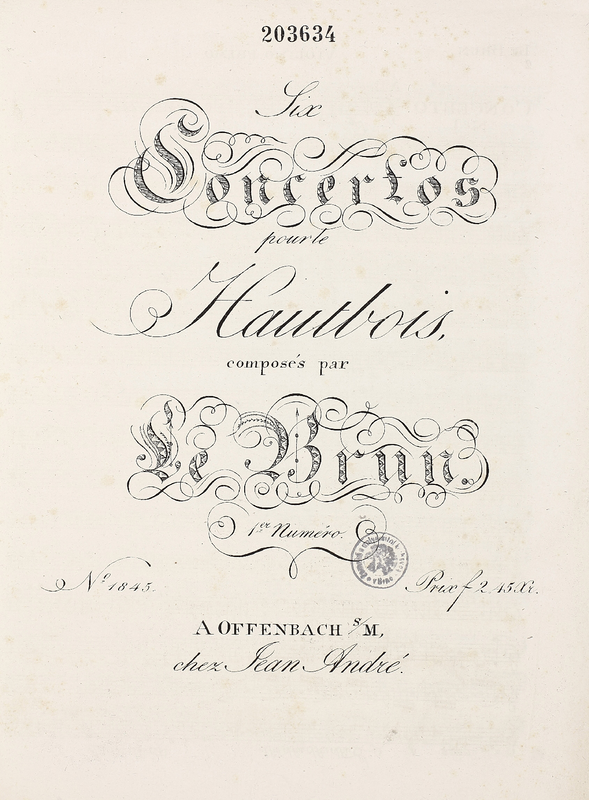 203634
Six
Concertos
pour le
Hautbois,
composés par
Le Brun.
1er Numéro.
No 1845. Prix f 2.45 Xr.
A OFFENBACH s/M,
chez Jean André.